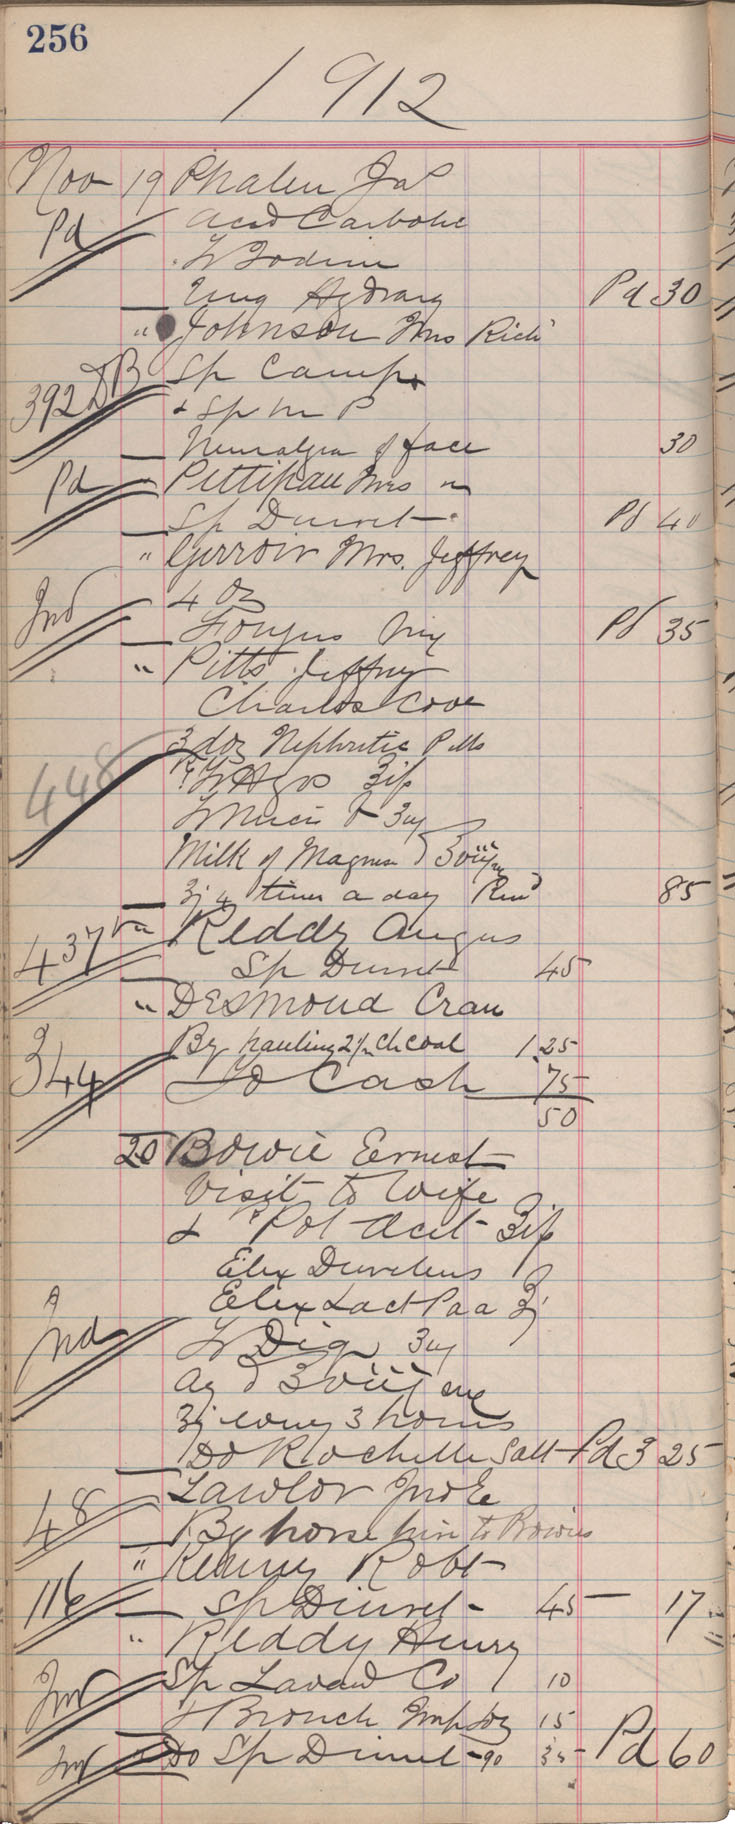 256
1912
Nov 19 Phalen Jas
Pd Acid Carbolic
Tr Iodine
Ung Hydrarg Pd 30
" Johnson Mrs Rich
392 DB Sp Camph
& Sp
Neuralgia of face 30
Pd " Pettipau Mrs
Sp Diuret Pd 40
" Girroir Mrs. Jeffrey
4 oz
Ind mix Pd 35
" Pitts Jeffrey
Charlos Cove
448 3 doz Nephritic Pills
Tr Hyos ʒij
Tr
Milk of Magnes
ʒj 4 times a day 85
437 Reddy Angus
Sp Diuret 45
" Desmond Cran
344 By hauling coal 1.25
To Cash 75
50
20 Bowie Ernest
Visit to Wife
& Pot Acet ʒij
Elix
Elix Lact
Ind Tr Dig
Aq
ʒj every 3 hours
Do Rochelle Salt Pd 3 25
48 Lawlor Jno E
By horse hire to Bowies
" Kenny Robt
116 Sp Diuret 45 — 17
" Reddy Henry
Sp Lavand Co 10
& Bronch 15
Do Sp Diuret 90 35 Pd 60